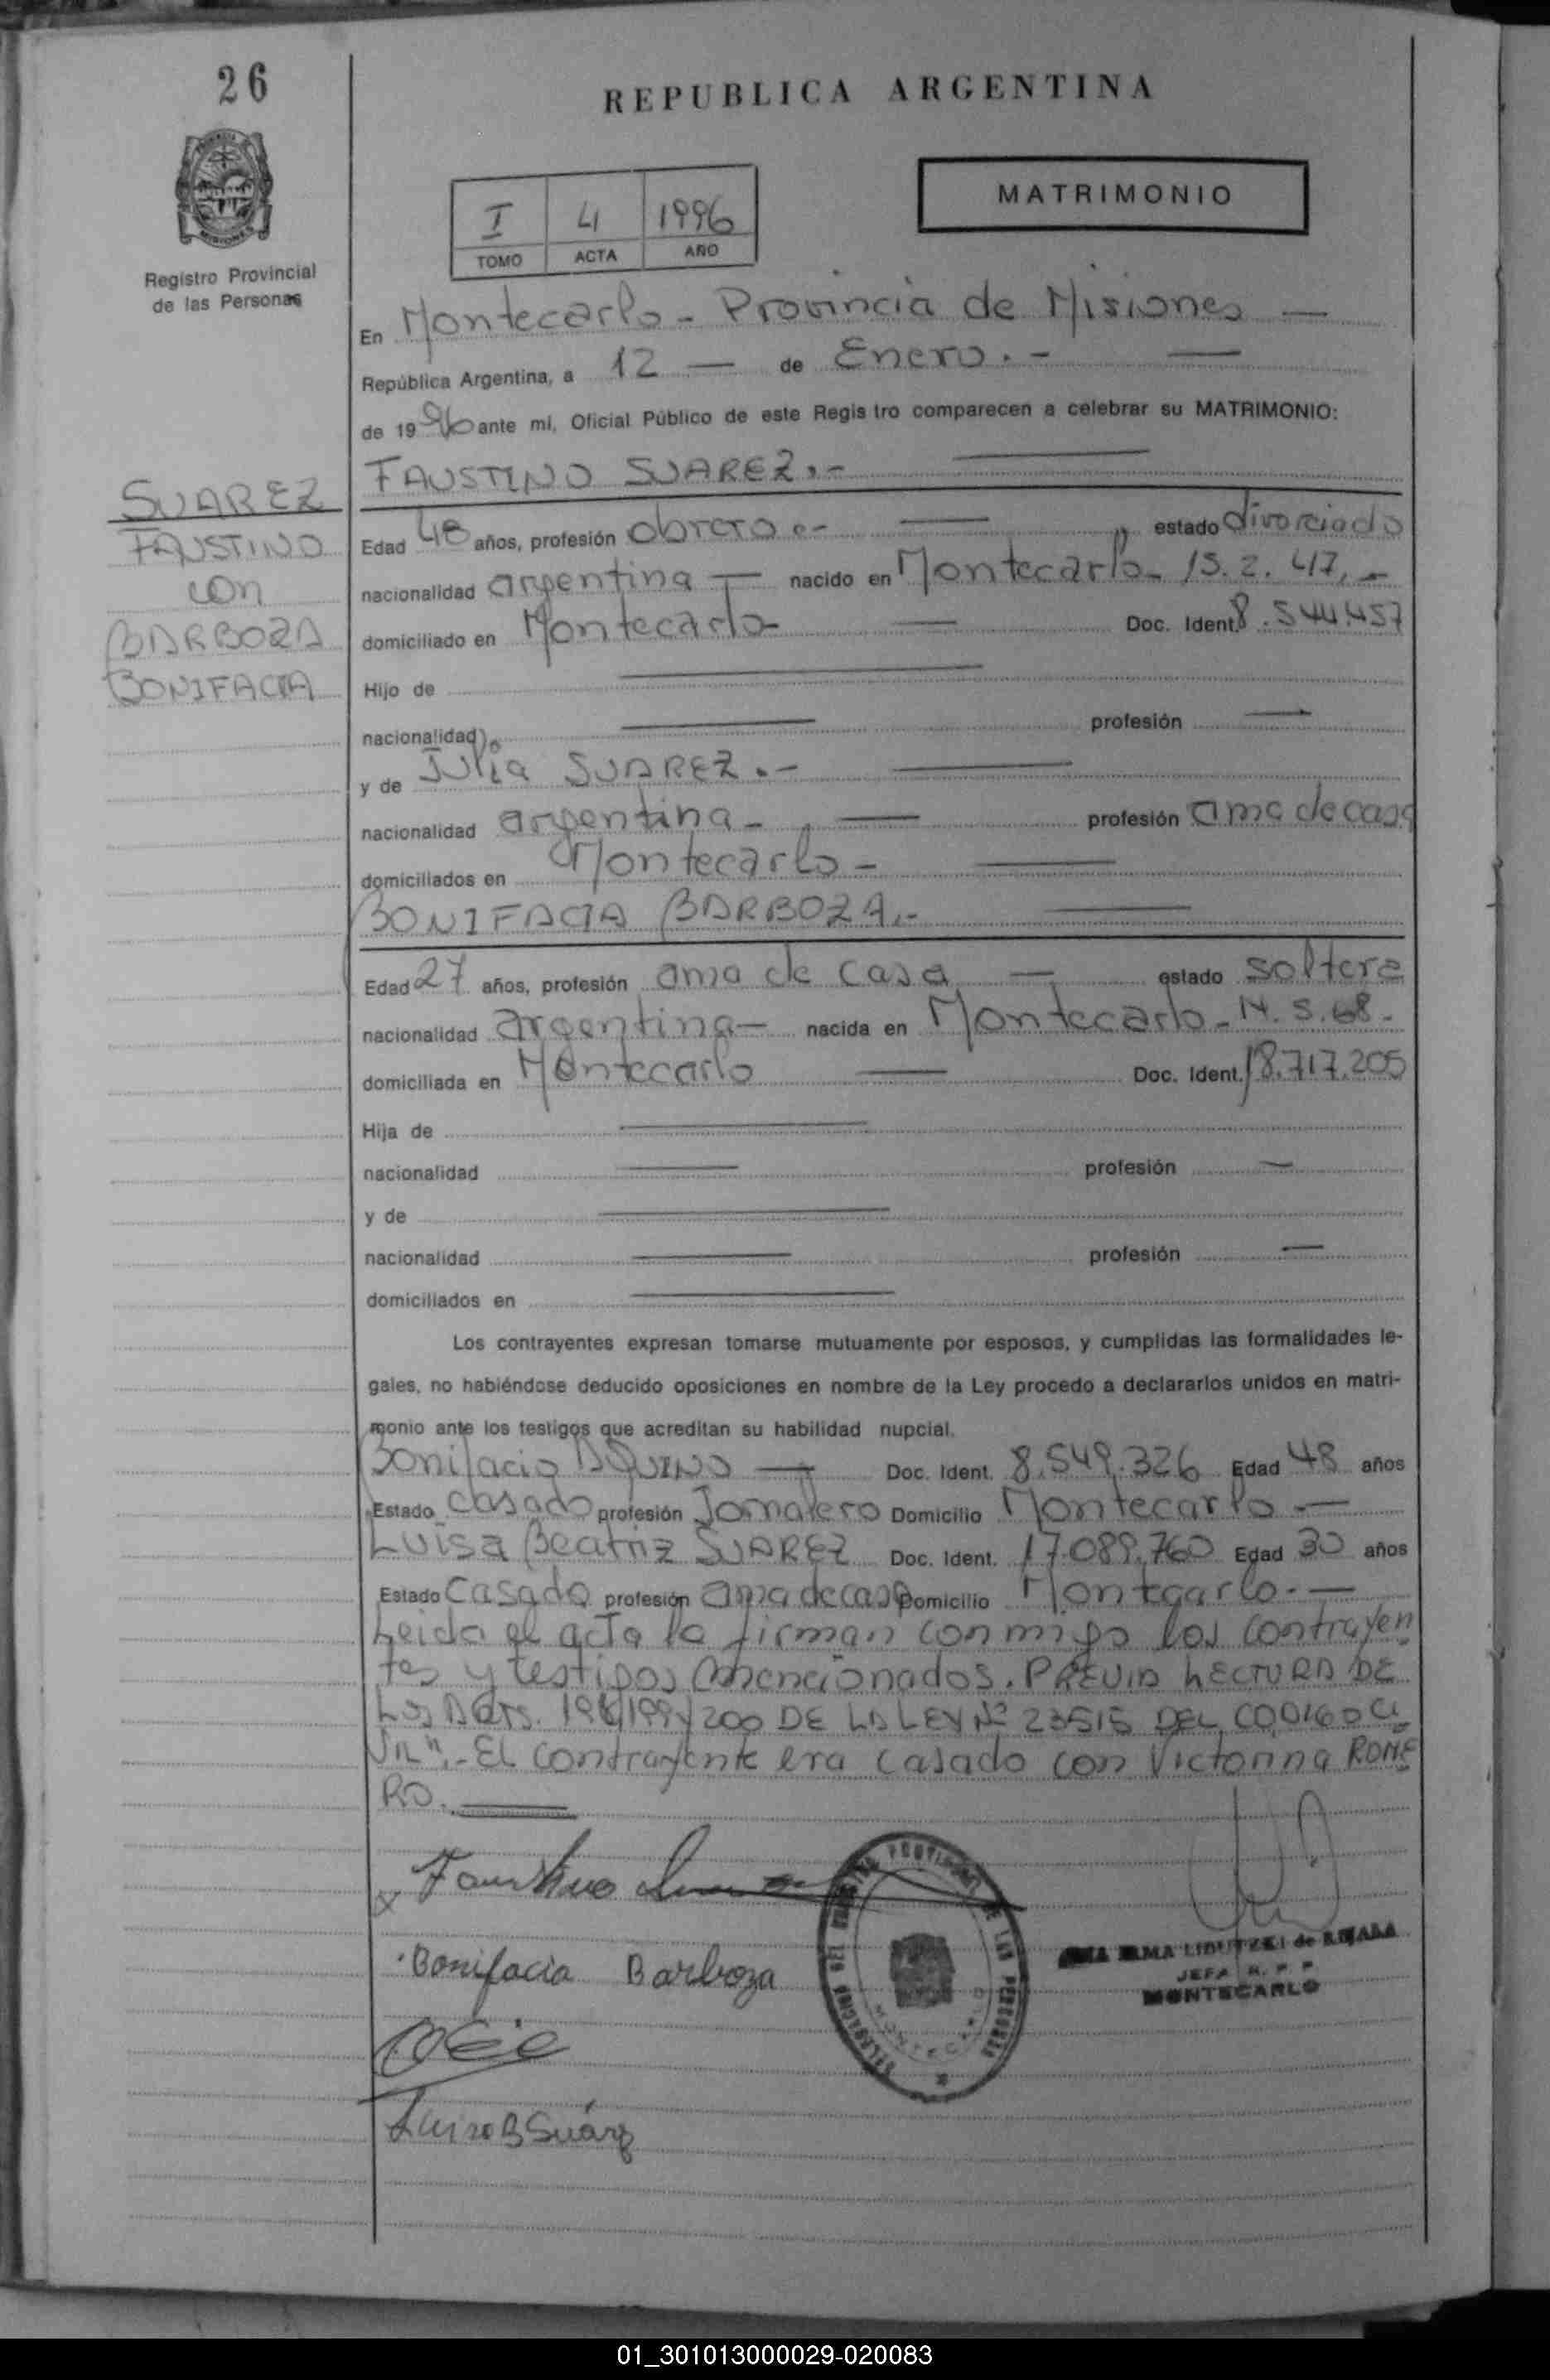 26
REPUBLICA ARGENTINA
MATRIMONIO
I 4 1996
TOMO ACTA AÑO
Registro Provincial
de las Personas
En Montecarlo - Provincia de Misiones —
República Argentina, a 12 — de Enero. - —
de 1996 ante mi, Oficial Público de este Regis tro comparecen a celebrar su MATRIMONIO:
FAUSTINO SUAREZ.-
SUAREZ
FAUSTINO
con
BARBOZA
BONIFACIA
Edad 48 años, profesión obrero.- — estado divorciado
nacionalidad argentina — nacido en Montecarlo - 15.2.47.-
domiciliado en Montecarlo — Doc. Ident. 8.544.457
Hijo de —
nacionalidad — profesión —
y de Julia SUAREZ.- —
nacionalidad argentina - — profesión ama de casa
domiciliados en Montecarlo - —
BONIFACIA BARBOZA.- —
Edad 27 años, profesión ama de casa — estado soltera
nacionalidad argentina — nacida en Montecarlo - 14.5.68.-
domiciliada en Montecarlo — Doc. Ident. 18.717.205
Hija de —
nacionalidad — profesión —
y de —
nacionalidad — profesión —
domiciliados en —
Los contrayentes expresan tomarse mutuamente por esposos, y cumplidas las formalidades le-
gales, no habiéndose deducido oposiciones en nombre de la Ley procedo a declararlos unidos en matri-
monio ante los testigos que acreditan su habilidad nupcial.
Bonifacio AQUINO — Doc. Ident. 8.549.326 Edad 48 años
Estado casado profesión Jornalero Domicilio Montecarlo. —
Luisa Beatriz SUAREZ Doc. Ident. 17.089.760 Edad 30 años
Estado casada profesión ama de casa Domicilio Montecarlo. —
Leida el acta la firman conmigo los contrayen
tes y testigos mencionados. PREVIA LECTURA DE
LOS Arts. 198/199/200 DE LA LEY Nº 23515 DEL CODIGO CI
VIL".- El contrayente era casado con Victorina ROME
RO.
x Faustino
Bonifacia Barboza
Luisa B Suárez
DELEGACION DEL REGISTRO PROVINCIAL DE LAS PERSONAS
MONTECARLO
IRMA de
JEFA R. P. P.
MONTECARLO
01_301013000029-020083